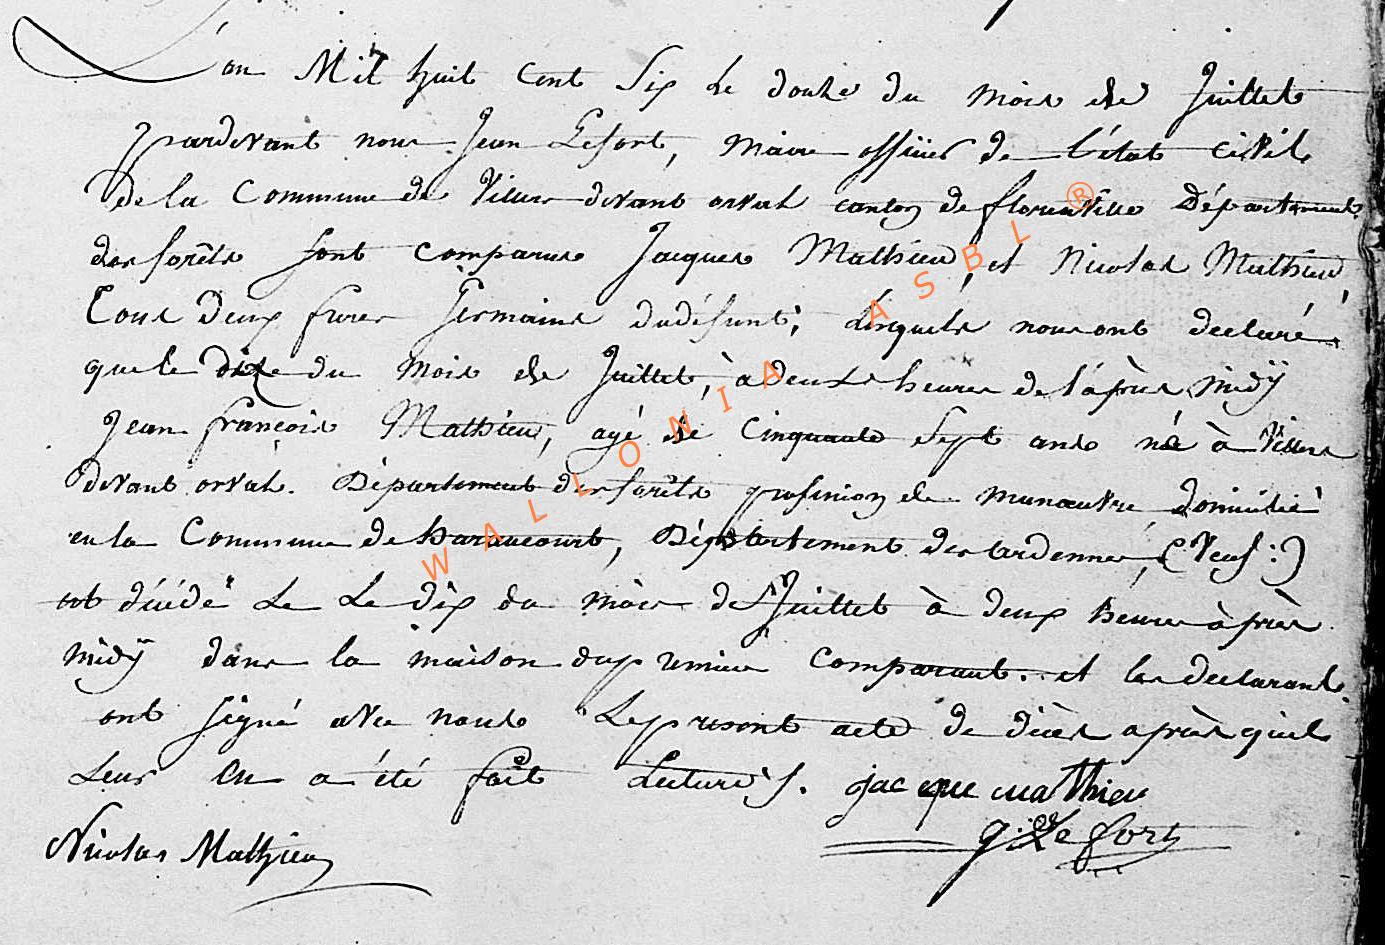 L'an Mil huit cent Six Le douze du mois de Juillet
pardevant nous Jean Lefort, Maire officier de L'état civil
De la Commune de Villers devant orval canton de florenville Département
des forêts sont comparus Jacques Mathieu, et Nicolas Mathieu,
Tous Deux freres Germains du défunt, Lesquels nous ont declaré
que le dix du Mois de Juillet, à deux heures de l'après midÿ
Jean françois Mathieu, agé de Cinquante Sept ans né à Villers
devant orval. Département des forêts profession de manœuvre domicilié
en la Commune de haraucourt, Département des ardennes, (Veuf:)
est décédé Le Le dix du mois de Juillet à deux heures après
midÿ dans la maison du premier Comparant. et les declarants
ont signé avec nous Le present acte de décès après qu'il
Leur en a été fait Lecture. jacque mathieu
Nicolas Mathieu
Lefort
WALLONIA ASBL ®